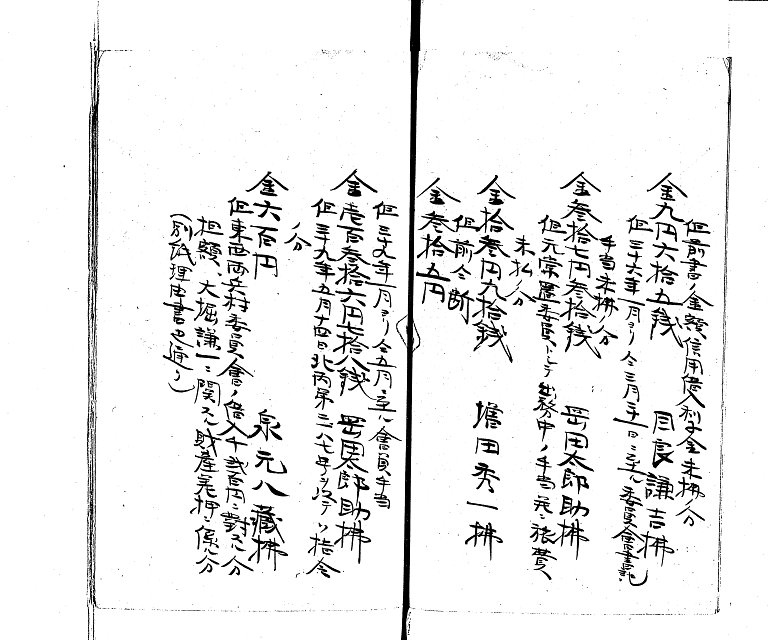 但前書ノ金額信用借入利子金未拂ノ分
金九円六拾五銭 同良謙吉拂
但三十六年一月ヨリ仝三月三十一日ニ至ル委員會書記
手当未拂ノ分
金参拾七円参拾銭 岡田太郎助拂
但元常置委員トシテ出務中ノ手当並ニ旅費、
未払ノ分
金拾参円九拾銭 増田秀一拂
但前仝断
金参拾五円
但三十九年一月ヨリ仝五月ニ至ル會員手当
金壱百参拾六円七拾八銭 岡田太郎助拂
但三十九年五月十四日北丙第三八七号ヲ以テノ指令
ノ分
金六百円 泉元八藏拂
但東西両立村委員會ノ借入千弐百円ニ對スル分
担額、大堀謙一ニ関スル財産差押ニ係ル分
(別紙理由書之通リ)